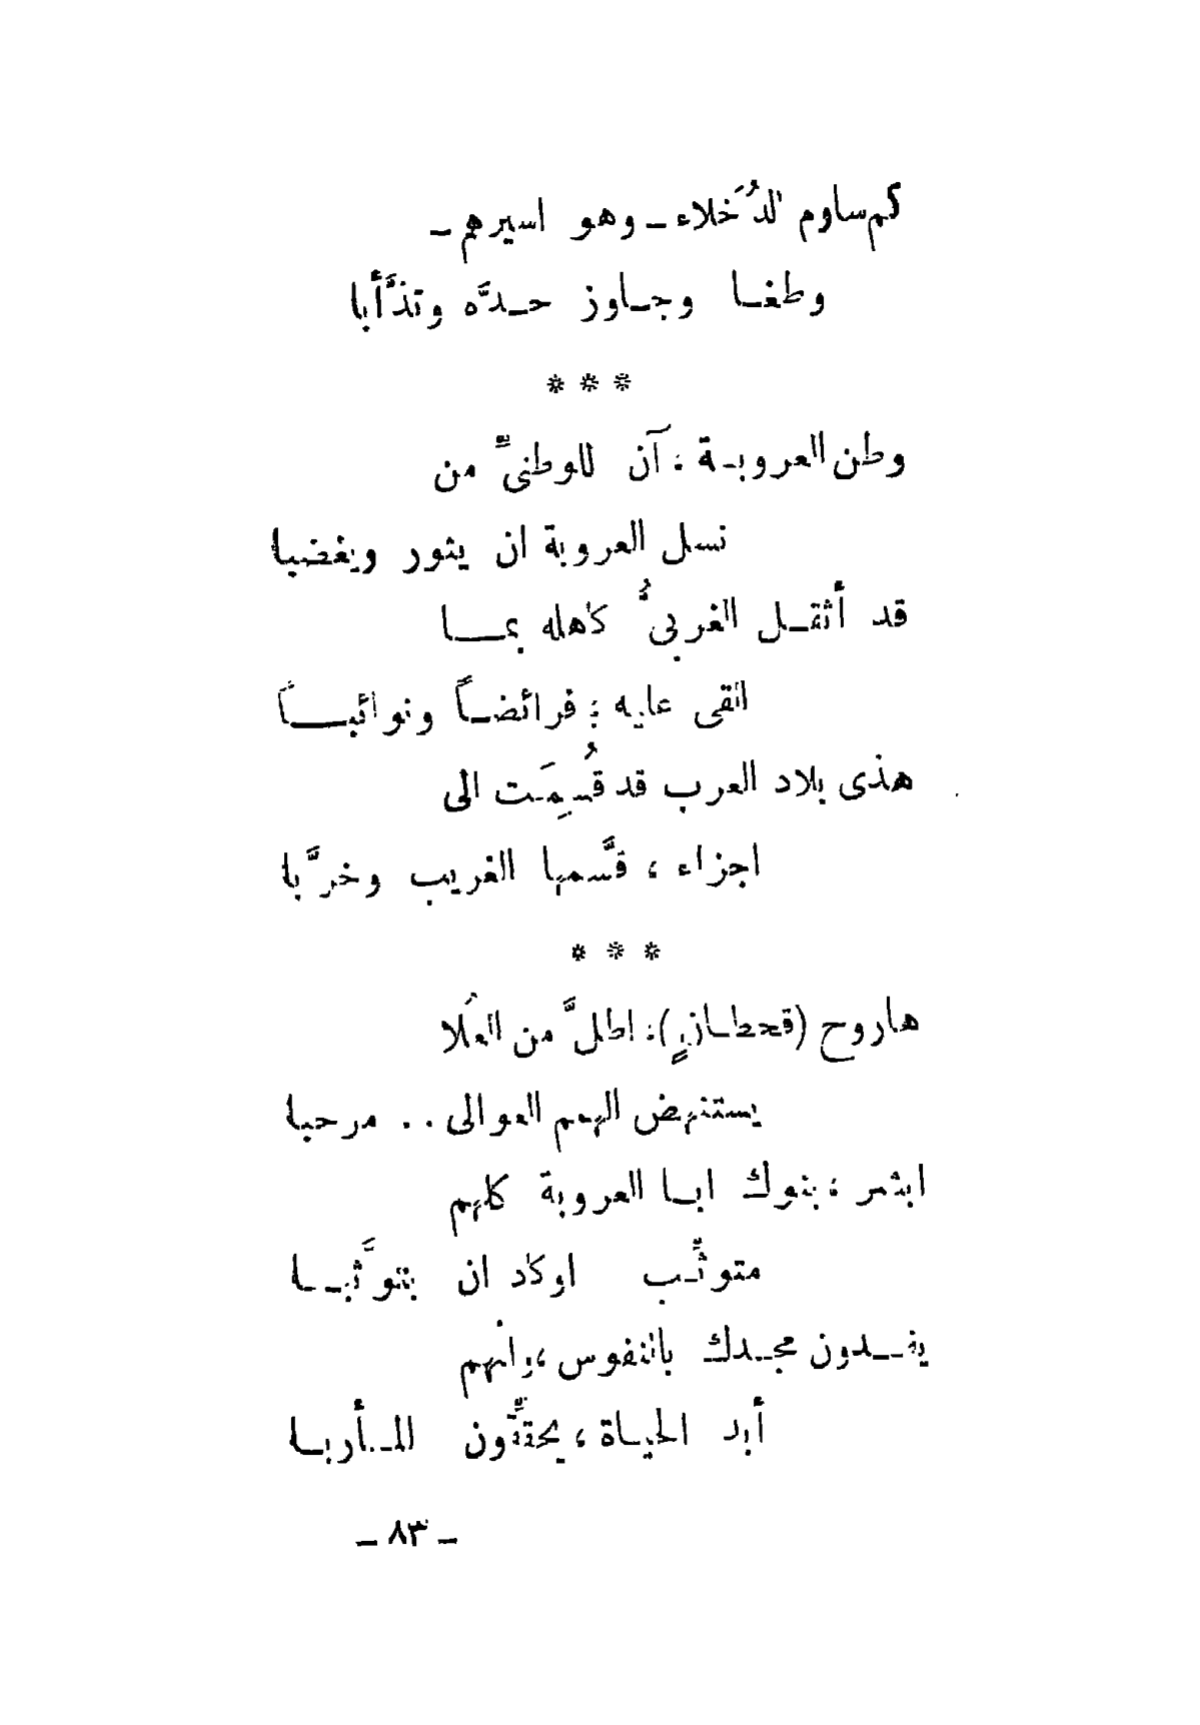 كم ساوم الدُخَلاء – وهو اسيرهم –
وطغا وجاوز حدَّه وتذَّأبا
* * *
وطن العروبة ؛ آن للوطنيِّ من
نسل العروبة ان يثور ويغضبا
قد أثقل الغربيُّ كاهله بما
القى عليه ؛ فرائضاً ونوائباً
هذى بلاد العرب قد قُسِمَت الى
اجزاء ، قسَّمها الغريب وخرَّبا
* * *
ها روح (قحطانٍ) ؛ اطلَّ من العُلا
يستنهض الهمم العوالى .. مرحبا
ابشر ؛ بنوك ابا العروبة كلهم
متوثِّب اوكاد ان يتوثَّبا
يفدون مجدك بالنفوس ، وانهم
أبد الحياة ، يحقِّقون المأربا
– ٨٣ –